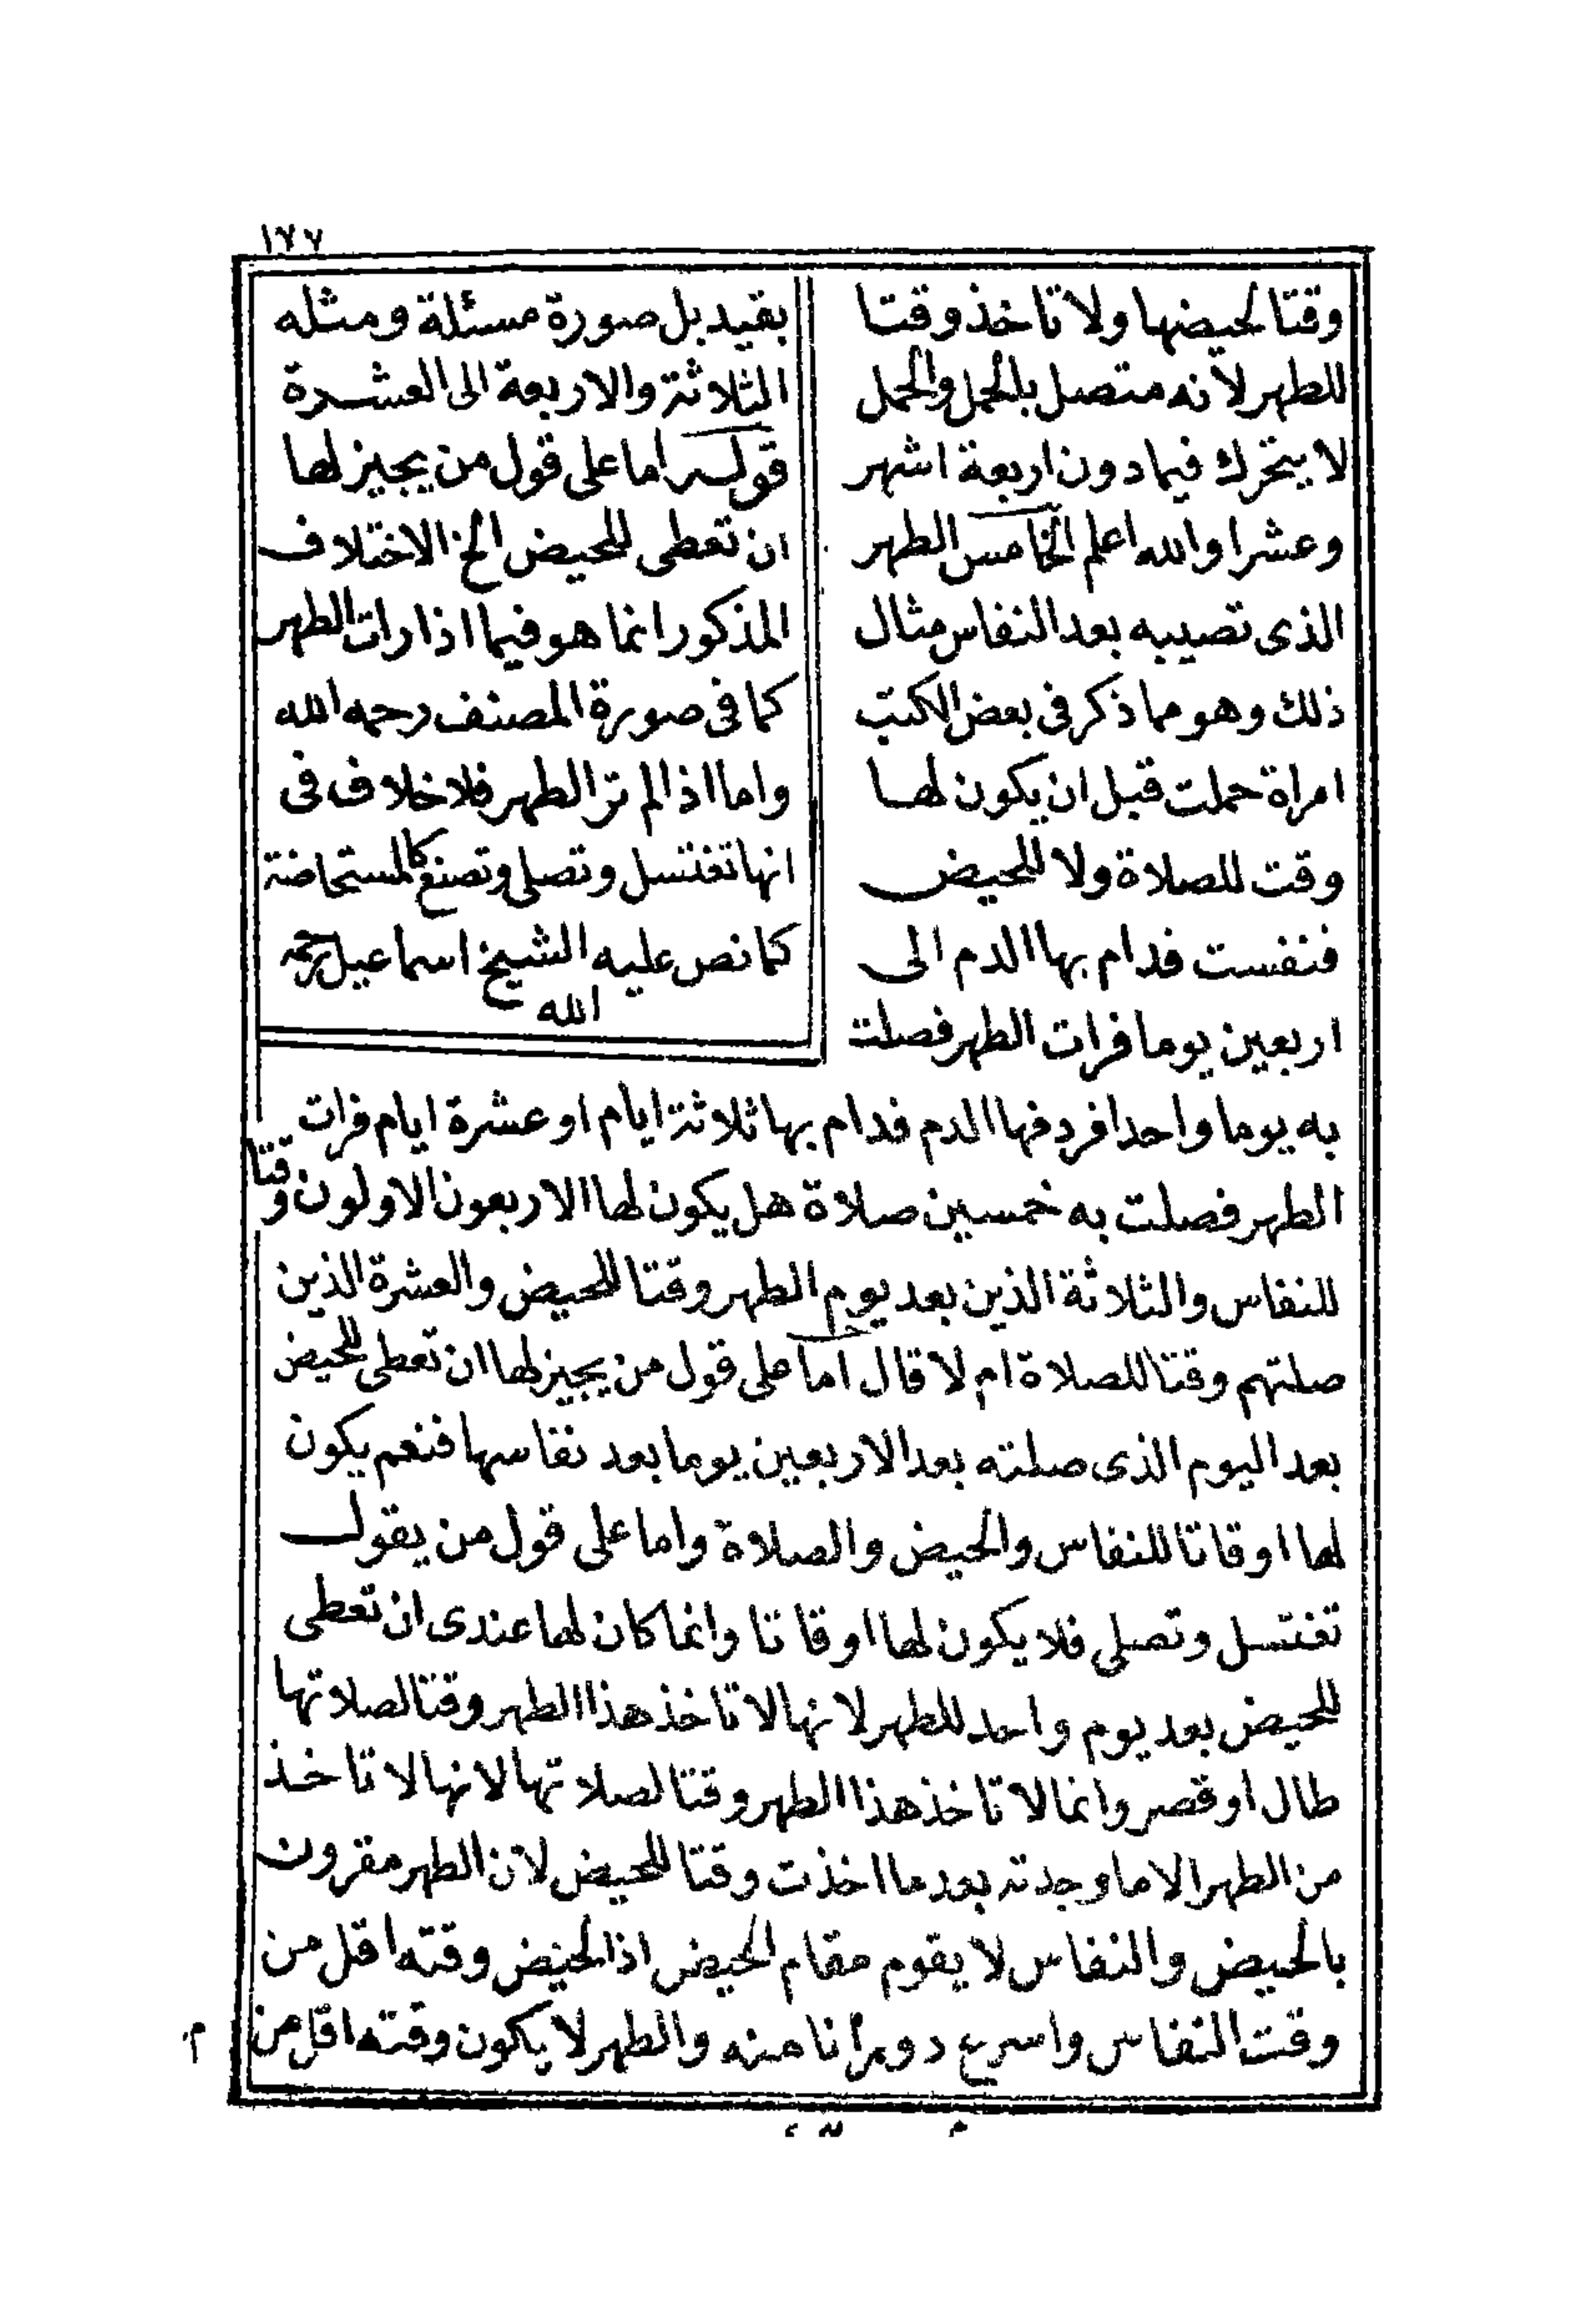 ١٧٧
وقتا لحيضها ولا تاخذ وقتا
للطهر لانه متصل بالحمل والحمل
لا يتحرك فيما دون اربعة اشهر
وعشرا والله اعلم الخامس الطهر
الذى تصيبه بعد النفاس مثال
ذلك وهو مما ذكر فى بعض الكتب
امراة حملت قبل ان يكون لها
وقت للصلاة ولا للحيض
فنفست فدام بها الدم الى
اربعين يوما فرات الطهر فصلت
بقيد بل صورة مسئلة ومثله
الثلاثة والاربعة الى العشرة
قوله اما على قول من يجيز لها
ان تعطى للحيض الخ الاختلاف
المذكور انما هو فيما اذا رات الطهر
كما فى صورة المصنف رحمه الله
واما اذا لم تر الطهر فلا خلاف فى
انها تغتسل وتصلى وتصنع كالمستحاضة
كما نص عليه الشيخ اسماعيل رحمه
الله
به يوما واحدا فردفها الدم فدام بها ثلاثة ايام او عشرة ايام فرات
الطهر فصلت به خمسين صلاة هل يكون لها الاربعون الاولون وقتا
للنفاس والثلاثة الذين بعد يوم الطهر وقتا للحيض والعشرة الذين
صلتهم وقتا للصلاة ام لا قال اما على قول من يجيز لها ان تعطى للحيض
بعد اليوم الذى صلته بعد الاربعين يوما بعد نفاسها فنعم يكون
لها اوقاتا للنفاس والحيض والصلاة واما على قول من يقول
تغتسل وتصلى فلا يكون لها اوقاتا وانما كان لها عندى ان تعطى
للحيض بعد يوم واحد للطهر لانها لا تاخذ هذا الطهر وقتا لصلاتها
طال او قصر وانما لا تاخذ هذا الطهر وقتا لصلاتها لانها لا تاخذ
من الطهر الا ما وجدته بعد ما اخذت وقتا للحيض لان الطهر مقرون
بالحيض والنفاس لا يقوم مقام الحيض اذ الحيض وقته اقل من
وقت النفاس واسرع دورانا منه والطهر لا يكون وقته اقل من
م